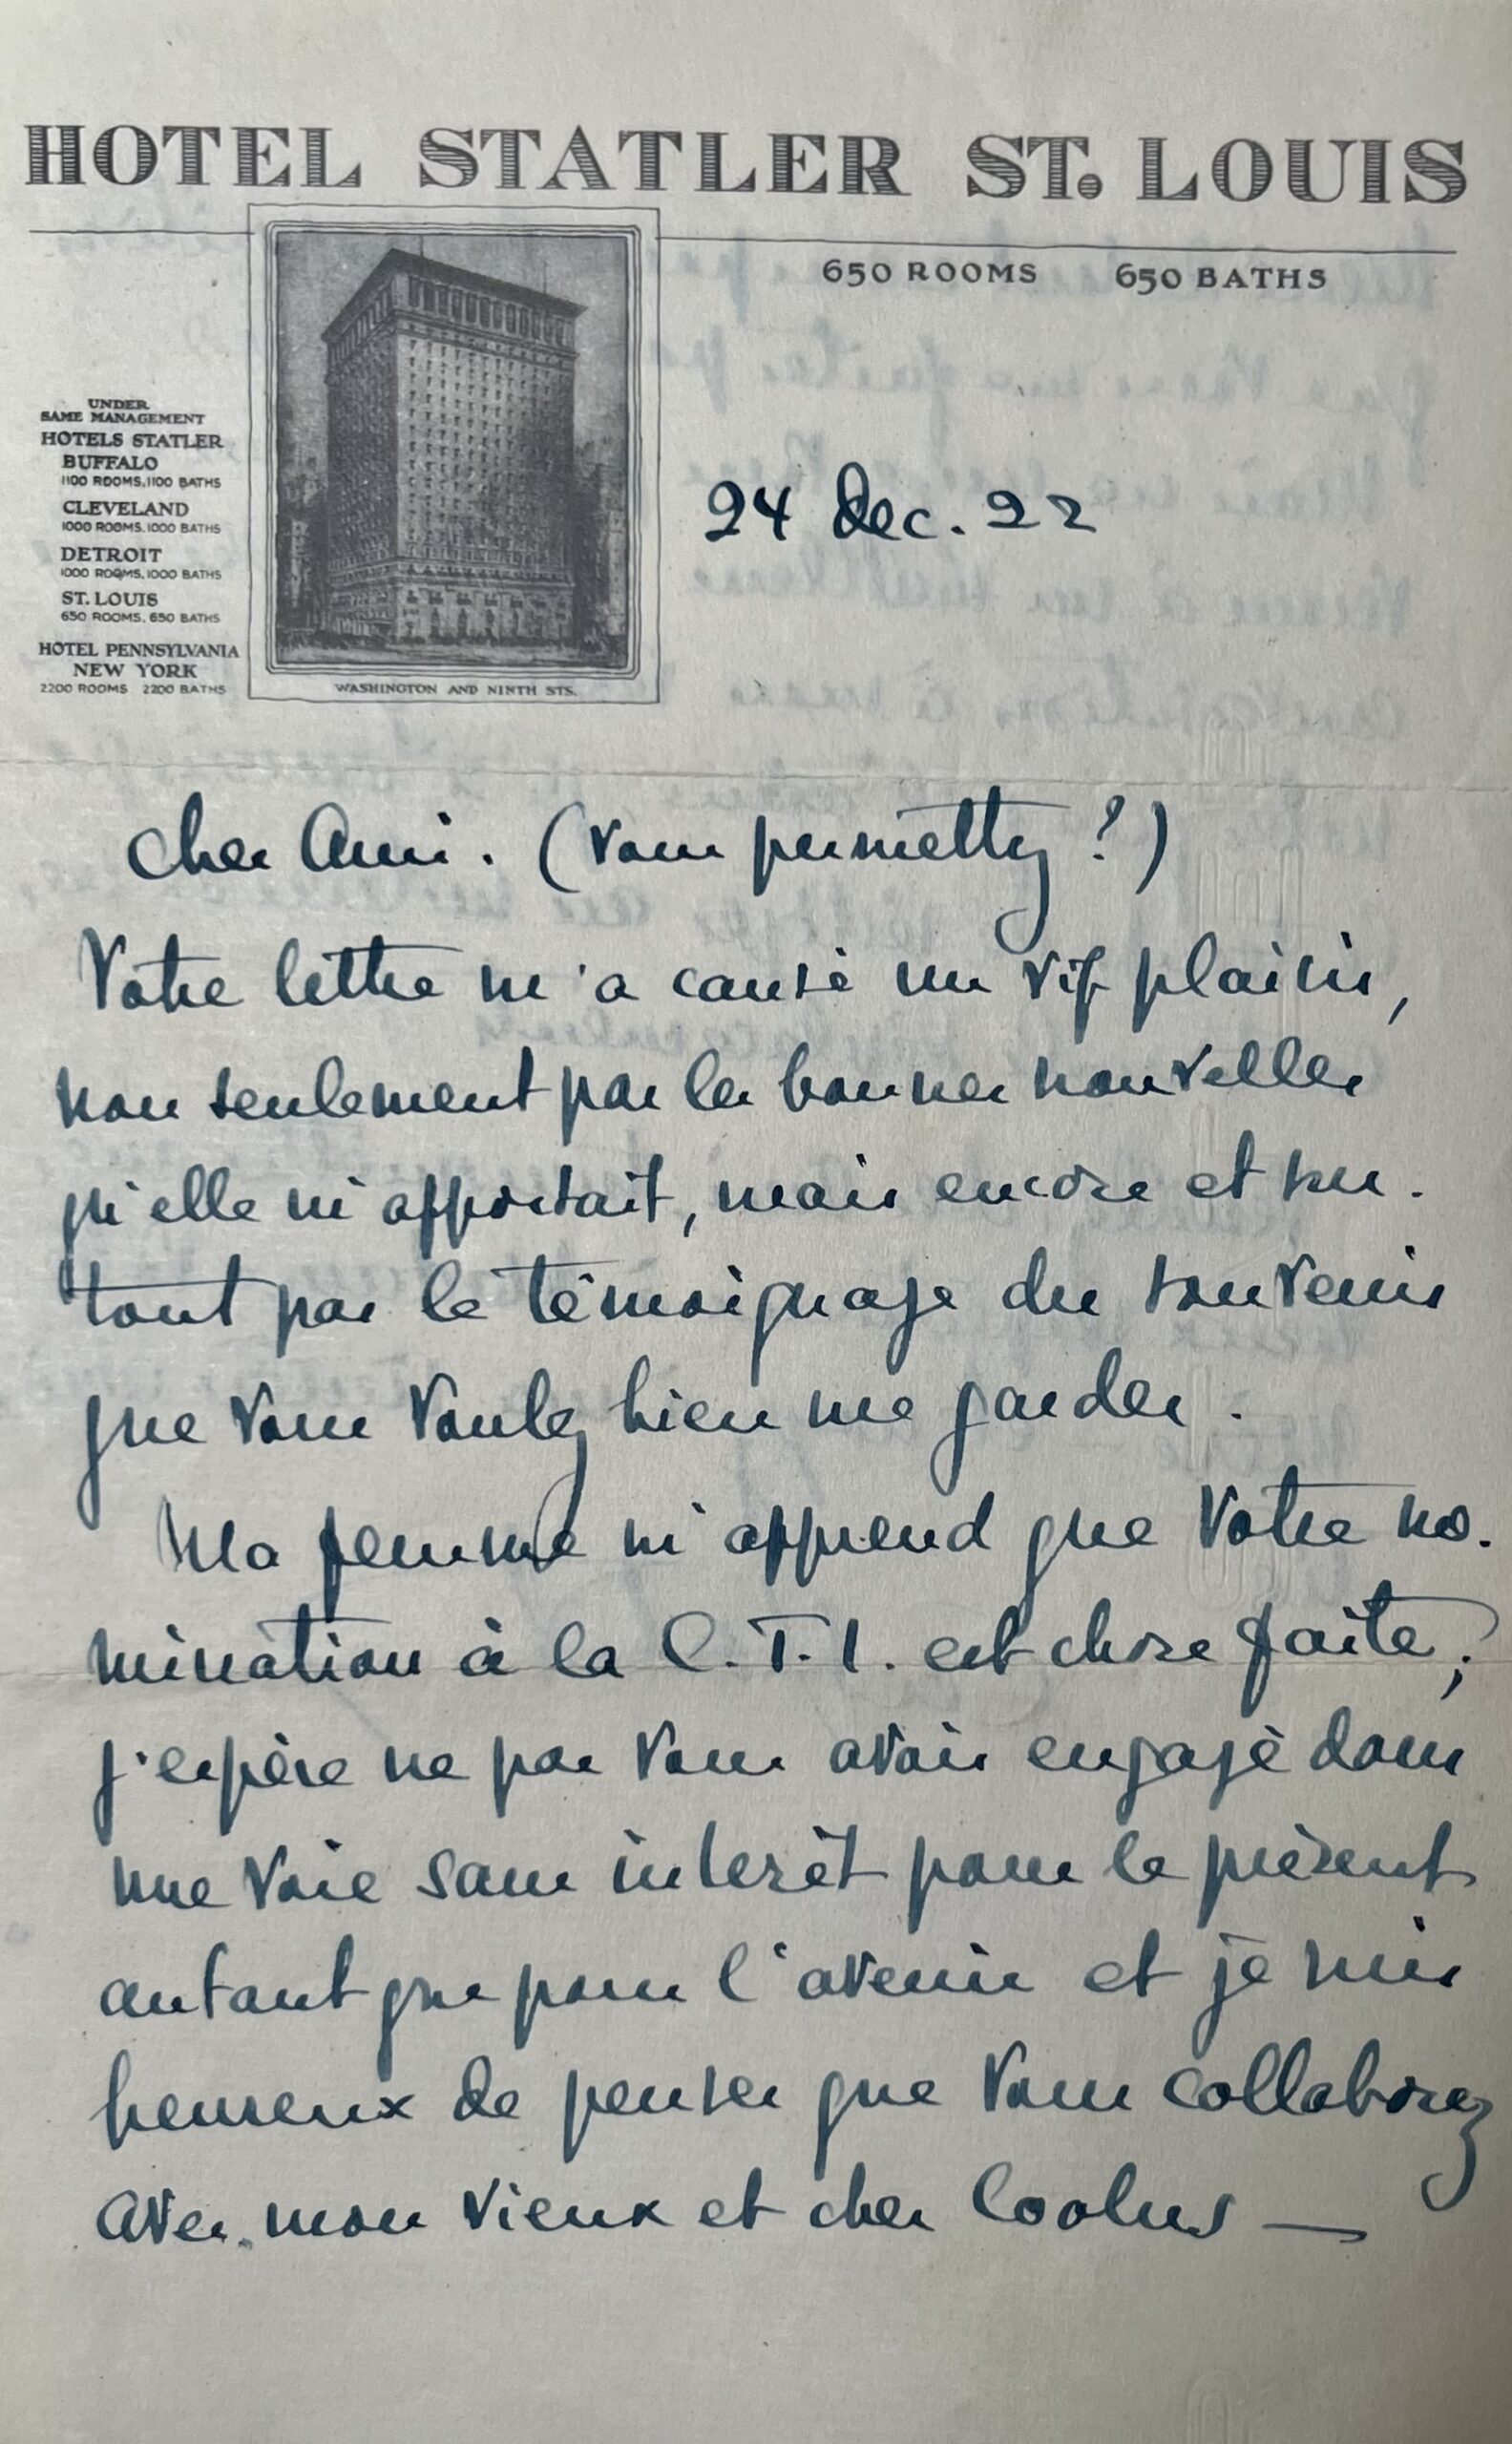 HOTEL STATLER ST. LOUIS
650 ROOMS 650 BATHS
UNDER
SAME MANAGEMENT
HOTELS STATLER
BUFFALO
1100 ROOMS, 1100 BATHS
CLEVELAND
1000 ROOMS, 1000 BATHS
DETROIT
1000 ROOMS, 1000 BATHS
ST. LOUIS
650 ROOMS, 650 BATHS
HOTEL PENNSYLVANIA
NEW YORK
2200 ROOMS 2200 BATHS
WASHINGTON AND NINTH STS.
24 Dec. 22
Cher Ami. (Vous permettez ?)
Votre lettre m'a causé un vif plaisir,
non seulement par les bonnes nouvelles
qu'elle m'apportait, mais encore et sur.
tout par le témoignage du souvenir
que vous voulez bien me garder.
Ma femme m'apprend que votre no.
mination à la C.T.I. est chose faite ;
j'espère ne pas vous avoir engagé dans
une voie sans intérêt pour le présent
autant que pour l'avenir et je suis
heureux de penser que vous collaborez
avec mon vieux et cher Coolus —